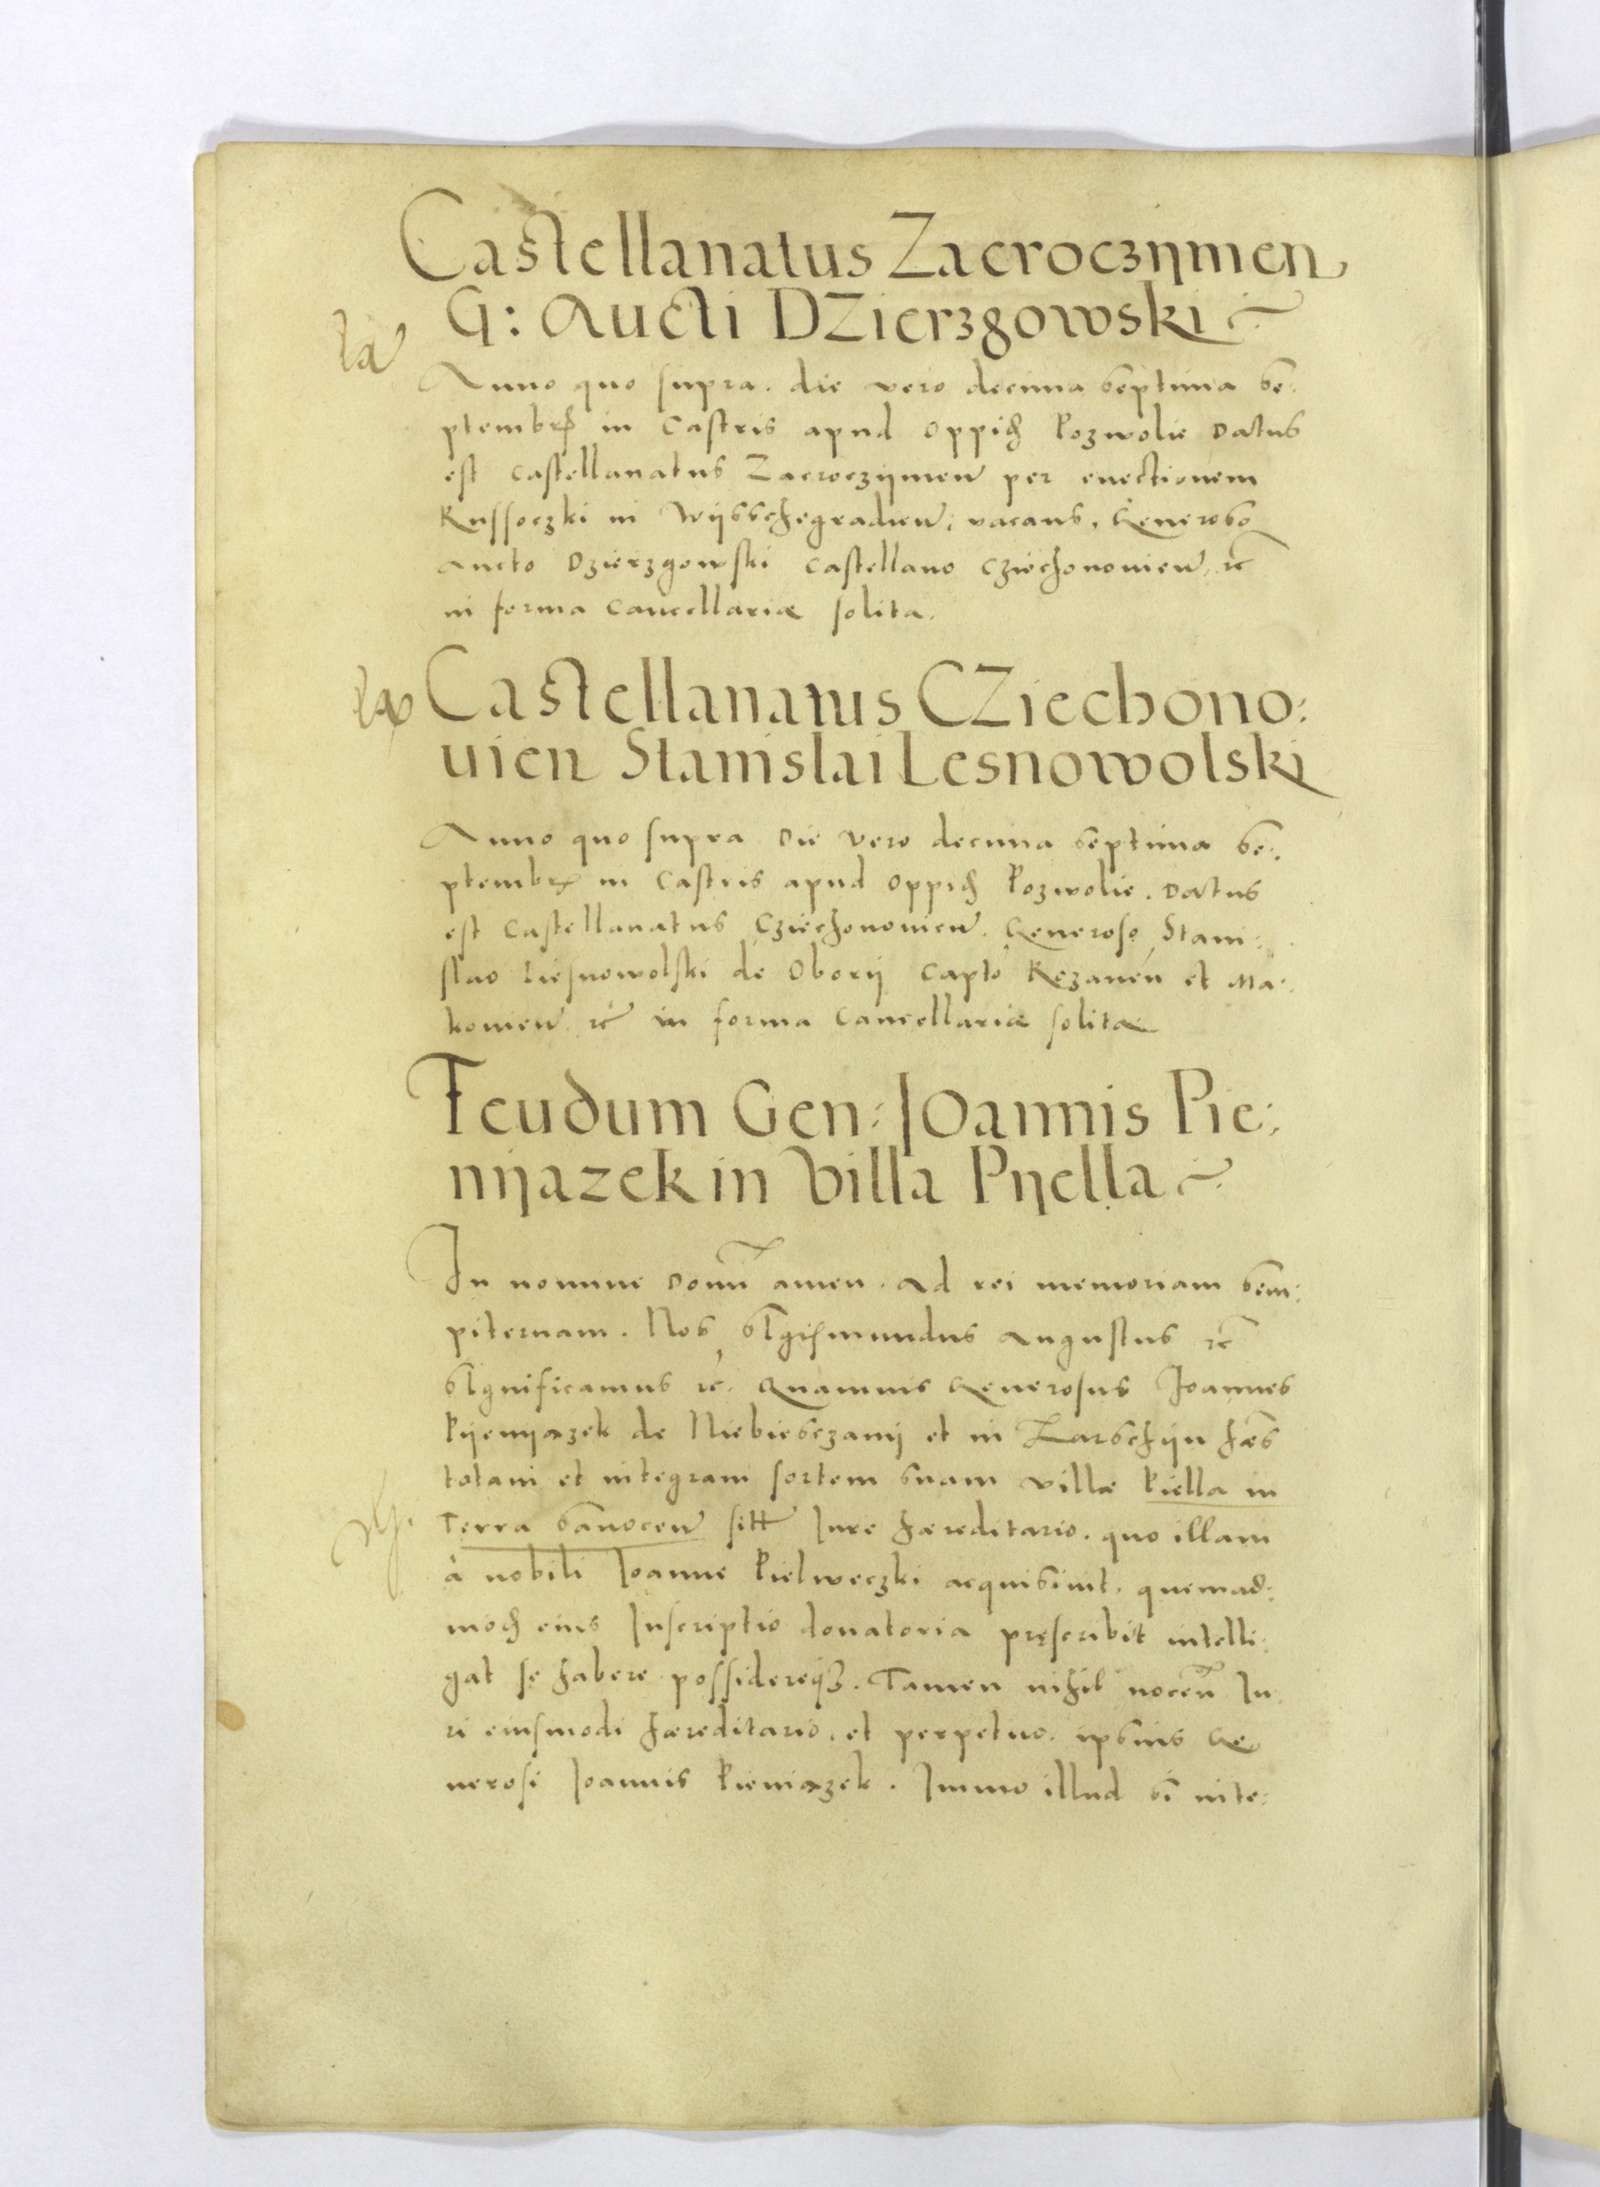 Castellanatus Zacroczijmen
G: Aucti DZierzgowski
Anno quo supra. die vero decima septima Se:
ptembr in Castris apud Oppid Pozwolie Datus
est Castellanatus Zacroczijmen per evectionem
Kussoczki in Wijsschegradien: vacans, Generoso
Aucto Dzierzgowski Castellano Cziechonovien. rc
in forma Cancellariæ solita.
Castellanatus CZiechono:
vien Stanislai Lesnowolski
Anno quo supra Die Vero decima septima Se:
ptembr in Castris apud Oppid Pozwolie. Datus
est Castellanatus Cziechonovien. Generoso Stani:
slao Liesnowolski de Oborij Capto Rozanen et Ma:
kovien. rc in forma Cancellariæ solita
Feudum Gen: Joannis Pie:
nijazek in Villa Pijella
In nomine Domi amen. Ad rei memoriam sem:
piternam. Nos Sigismundus Augustus rc
Significamus rc. Quamvis Generosus Joannes
Pijenijazek de Niebiesczanij et in Zarschijn hæs
totam et integram sortem suam villæ Pielła in
Terra Sanocen sitt Jure hæreditario. quo illam
à nobili Joanne Pielweczki acquisivit. quemad:
mod eius Inscriptio donatoria præscribit intelli:
gat se habere possidereq. Tamen nihil nocen Ju
ri eiusmodi hæreditario, et perpetuo. ipsius Ge
nerosi Joannis Pieniazek. Immo illud si inte: